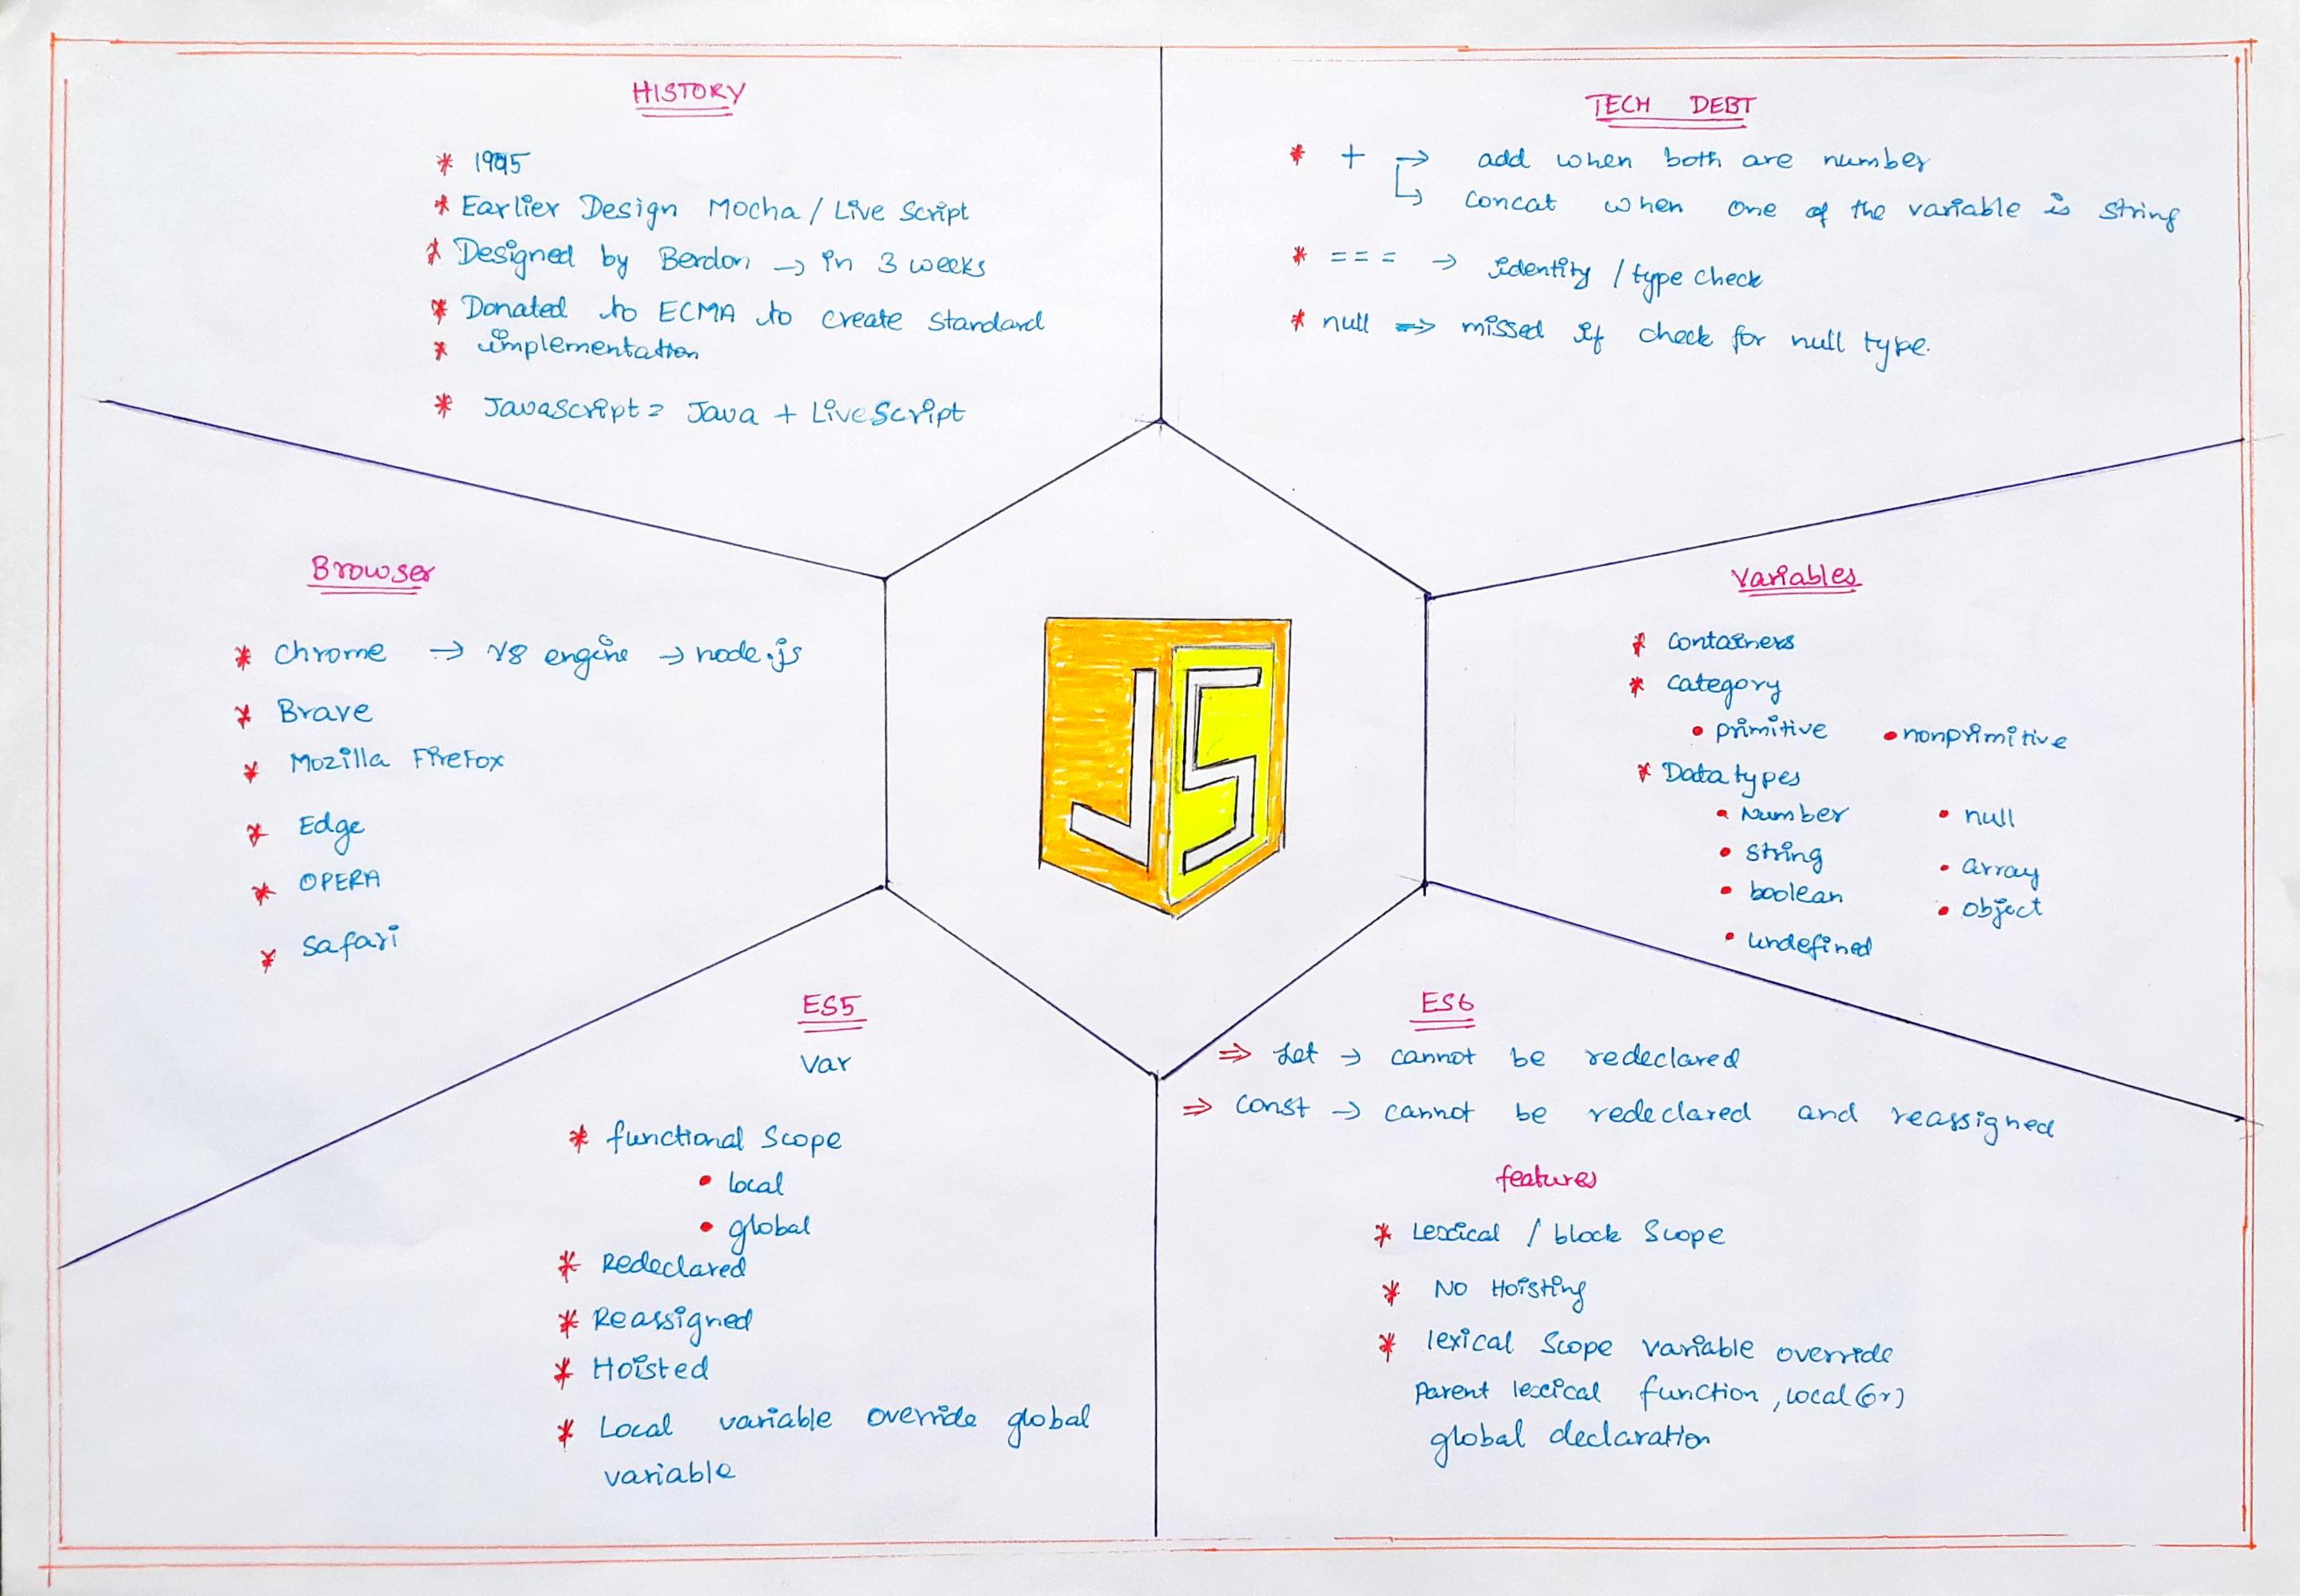 HISTORY
* 1995
* Earlier Design Mocha / Live Script
* Designed by Berdon → in 3 weeks
* Donated to ECMA to create standard
* implementation
* JavaScript = Java + LiveScript
TECH DEBT
* + → add when both are number
↳ concat when one of the variable is string
* === → identity / type check
* null => missed if check for null type.
Browser
* chrome → V8 engine → node.js
* Brave
* Mozilla FireFox
* Edge
* OPERA
* Safari
JS
Variables
* containers
* category
• primitive • nonprimitive
* Data types
• Number • null
• string • array
• boolean • object
• undefined
ES5
var
* functional Scope
• local
• global
* Redeclared
* Reassigned
* Hoisted
* Local variable override global
variable
ES6
⇒ Let → cannot be redeclared
⇒ const → cannot be redeclared and reassigned
features
* Lexical / block Scope
* NO Hoisting
* lexical Scope variable override
parent lexical function, local (or)
global declaration